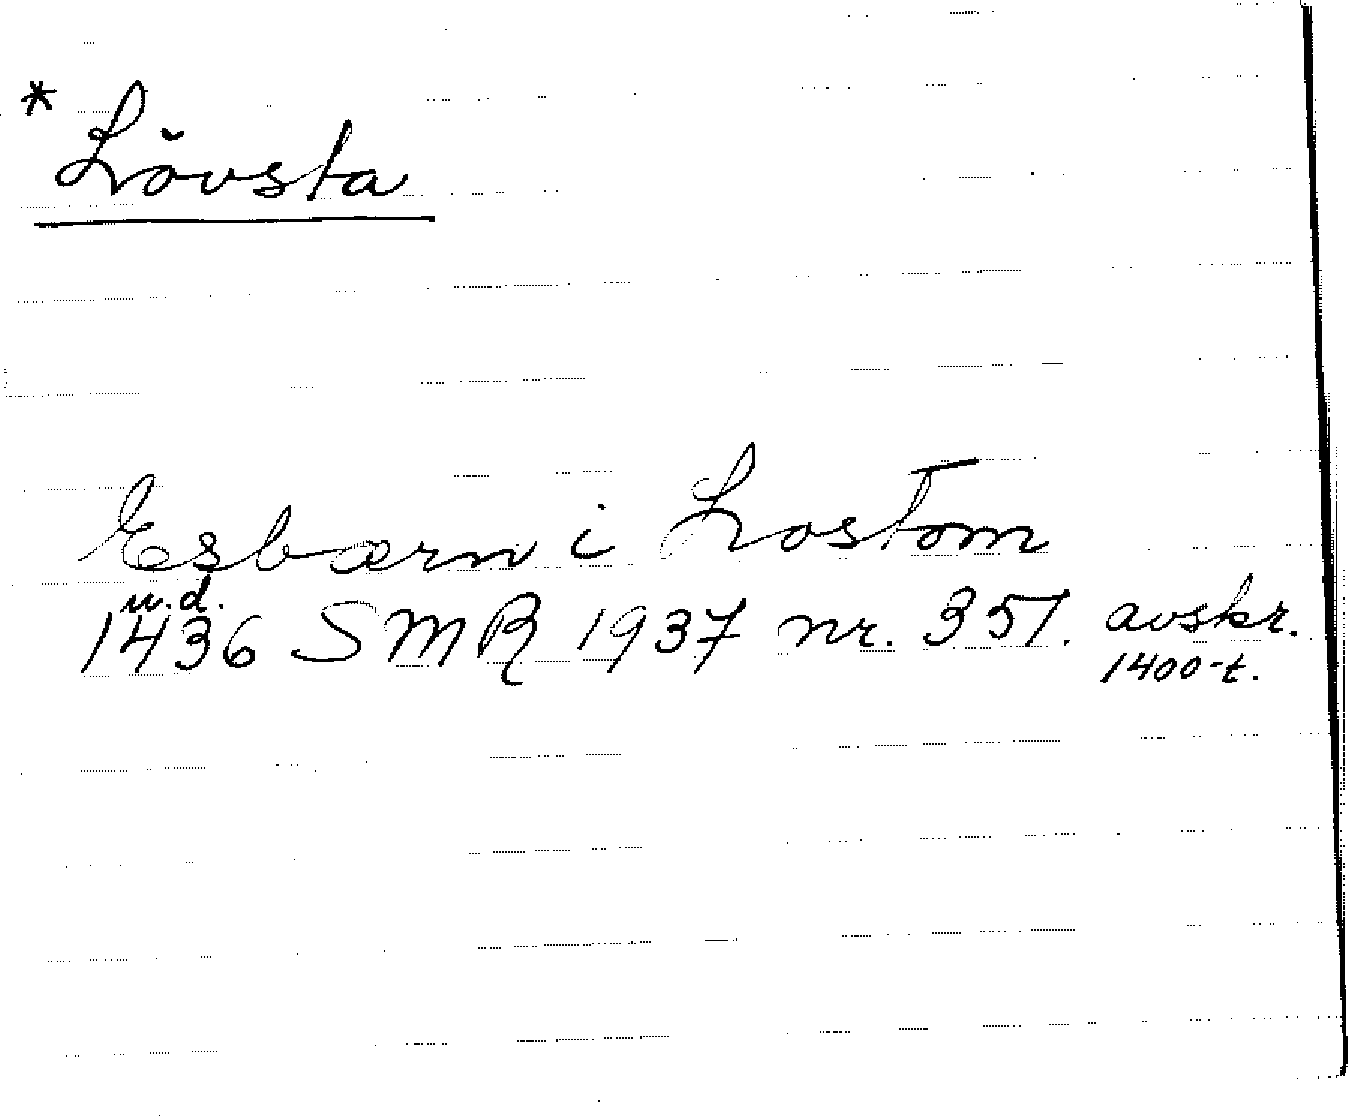 * Lövsta
Esbærn i Lostom
u.d.
1436 SMR 1937 nr. 351. avskr.
1400-t.